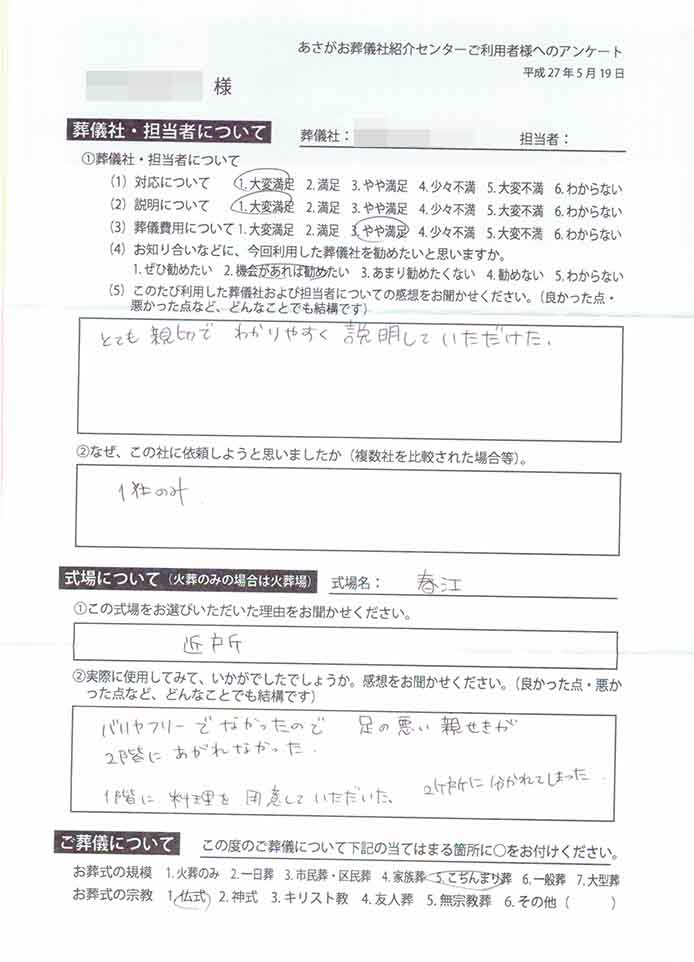 あさがお葬儀社紹介センターご利用者様へのアンケート
平成27年5月19日
様
葬儀社・担当者について
葬儀社：
担当者：
①葬儀社・担当者について
(1) 対応について 1. 大変満足 2. 満足 3. やや満足 4. 少々不満 5. 大変不満 6. わからない
(2) 説明について 1. 大変満足 2. 満足 3. やや満足 4. 少々不満 5. 大変不満 6. わからない
(3) 葬儀費用について 1. 大変満足 2. 満足 3. やや満足 4. 少々不満 5. 大変不満 6. わからない
(4) お知り合いなどに、今回利用した葬儀社を勧めたいと思いますか。
1. ぜひ勧めたい 2. 機会があれば勧めたい 3. あまり勧めたくない 4. 勧めない 5. わからない
(5) このたび利用した葬儀社および担当者についての感想をお聞かせください。（良かった点・
悪かった点など、どんなことでも結構です）
とても親切で わかりやすく 説明していただけた。
②なぜ、この社に依頼しようと思いましたか（複数社を比較された場合等）。
1社のみ.
式場について（火葬のみの場合は火葬場）
式場名： 春江
①この式場をお選びいただいた理由をお聞かせください。
近所
②実際に使用してみて、いかがでしたでしょうか。感想をお聞かせください。（良かった点・悪か
った点など、どんなことでも結構です）
バリヤフリーでなかったので 足の悪い親せきが
2階にあがれなかった.
1階に 料理を 用意していただいた、 2ヶ所に分かれてしまった.
ご葬儀について
この度のご葬儀について下記の当てはまる箇所に○をお付けください。
お葬式の規模 1. 火葬のみ 2. 一日葬 3. 市民葬・区民葬 4. 家族葬 5. こぢんまり葬 6. 一般葬 7. 大型葬
お葬式の宗教 1. 仏式 2. 神式 3. キリスト教 4. 友人葬 5. 無宗教葬 6. その他（ ）